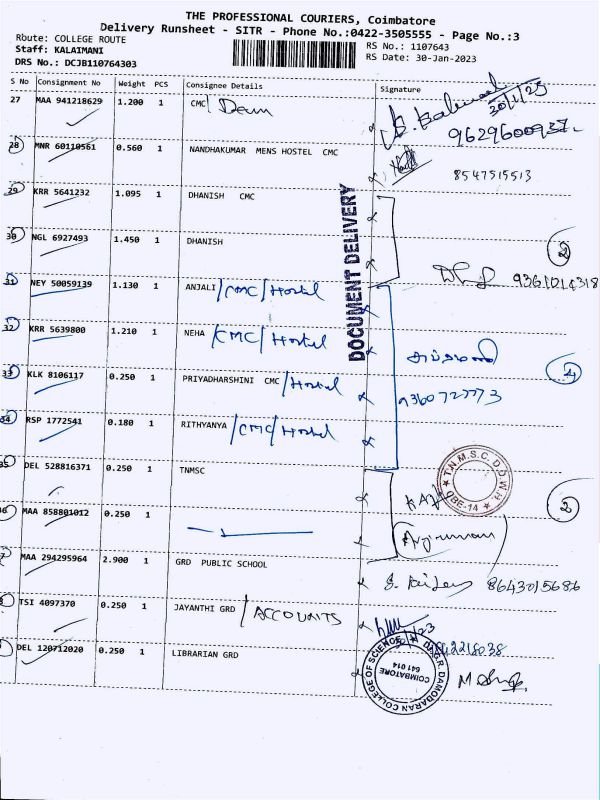 THE PROFESSIONAL COURIERS, Coimbatore
Delivery Runsheet - SITR - Phone No.:0422-3505555 - Page No.:3
Route: COLLEGE ROUTE
RS No.: 1107643
Staff: KALAIMANI
RS Date: 30-Jan-2023
DRS No.: DCJB110764303
S No Consignment No Weight PCS Consignee Details Signature
27 MAA 941218629 1.200 1 CMC / Dean
30/1/23
9629600937
28 MNR 60110561 0.560 1 NANDHAKUMAR MENS HOSTEL CMC
8547515513
29 KRR 5641232 1.095 1 DHANISH CMC
30 NGL 6927493 1.450 1 DHANISH
2
9361014318
DOCUMENT DELIVERY
31 NEY 50059139 1.130 1 ANJALI / CMC / Hostel
32 KRR 5639800 1.210 1 NEHA / CMC / Hostel
33 KLK 8106117 0.250 1 PRIYADHARSHINI CMC / Hostel
4
9360727773
34 RSP 1772541 0.180 1 RITHYANYA / CMC / Hostel
35 DEL 528816371 0.250 1 TNMSC
T.N.M.S.C. D.D.W.H
CBE-14
2
36 MAA 858801012 0.250 1
37 MAA 294295964 2.900 1 GRD PUBLIC SCHOOL
8643015686
TSI 4097370 0.250 1 JAYANTHI GRD / ACCOUNTS
DEL 120712020 0.250 1 LIBRARIAN GRD
DR.G.R. DAMODARAN COLLEGE OF SCIENCE
COIMBATORE
641 014